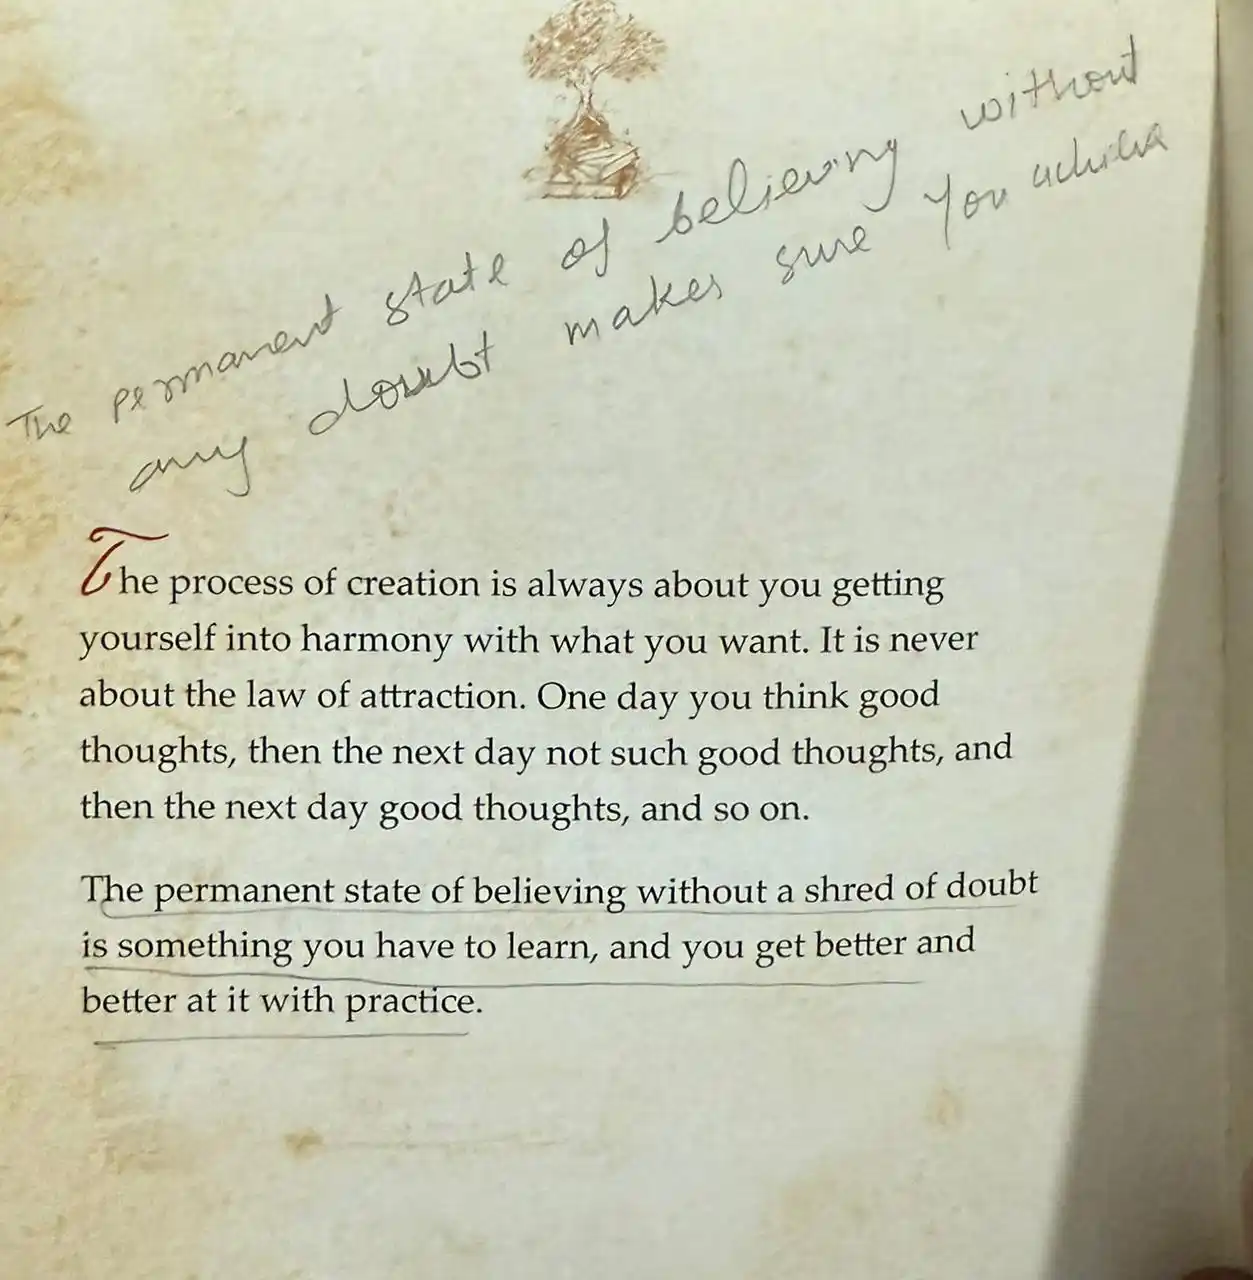 The permanent state of believing without
any doubt makes sure you
The process of creation is always about you getting
yourself into harmony with what you want. It is never
about the law of attraction. One day you think good
thoughts, then the next day not such good thoughts, and
then the next day good thoughts, and so on.
The permanent state of believing without a shred of doubt
is something you have to learn, and you get better and
better at it with practice.